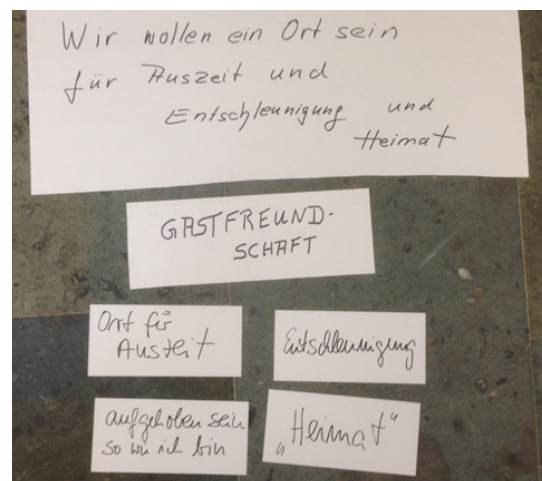 Wir wollen ein Ort sein
für Auszeit und
Entschleunigung und
Heimat
GASTFREUND-
SCHAFT
Ort für
Auszeit
Entschleunigung
aufgehoben sein
so wie ich bin
„Heimat“